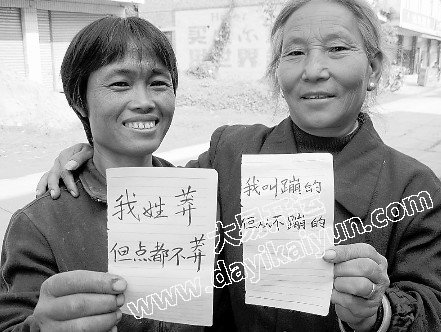 我姓莽
但点都不莽
我叫蹦的
但从不蹦的
www.dayikaiyun.com